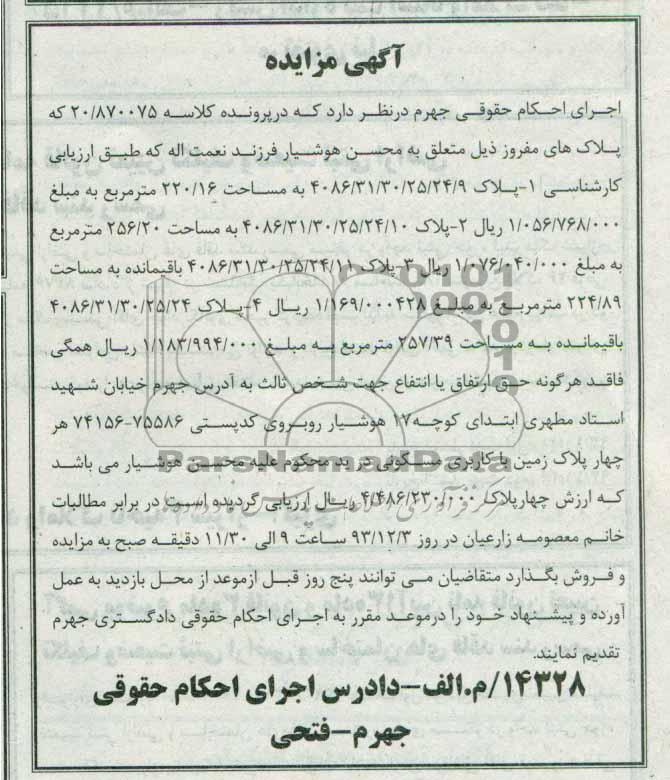 آگهی مزایده
اجرای احکام حقوقی جهرم درنظر دارد که درپرونده کلاسه ۲۰/۸۷۰۰۷۵ که
پلاک های مفروز ذیل متعلق به محسن هوشیار فرزند نعمت اله که طبق ارزیابی
کارشناسی ۱-پلاک ۴۰۸۶/۳۱/۳۰/۲۵/۲۴/۹ به مساحت ۲۲۰/۱۶ مترمربع به مبلغ
۱/۰۵۶/۷۶۸/۰۰۰ ریال ۲-پلاک ۴۰۸۶/۳۱/۳۰/۲۵/۲۴/۱۰ به مساحت ۲۵۶/۲۰ مترمربع
به مبلغ ۱/۰۷۶/۰۴۰/۰۰۰ ریال ۳-پلاک ۴۰۸۶/۳۱/۳۰/۲۵/۲۴/۱۱ باقیمانده به مساحت
۲۲۴/۸۹ مترمربع به مبلغ ۱/۱۶۹/۰۰۰۴۲۸ ریال ۴-پلاک ۴۰۸۶/۳۱/۳۰/۲۵/۲۴
باقیمانده به مساحت ۲۵۷/۳۹ مترمربع به مبلغ ۱/۱۸۳/۹۹۴/۰۰۰ ریال همگی
فاقد هرگونه حق ارتفاق یا انتفاع جهت شخص ثالث به آدرس جهرم خیابان شهید
استاد مطهری ابتدای کوچه۱۷ هوشیار روبروی کدپستی ۷۵۵۸۶-۷۴۱۵۶ هر
چهار پلاک زمین با کاربری مسکونی در ید محکوم علیه محسن هوشیار می باشد
که ارزش چهارپلاک ۴/۴۸۶/۲۳۰/۰۰۰ ریال ارزیابی گردیده است در برابر مطالبات
خانم معصومه زارعیان در روز ۹۳/۱۲/۳ ساعت ۹ الی ۱۱/۳۰ دقیقه صبح به مزایده
و فروش بگذارد متقاضیان می توانند پنج روز قبل ازموعد از محل بازدید به عمل
آورده و پیشنهاد خود را درموعد مقرر به اجرای احکام حقوقی دادگستری جهرم
تقدیم نمایند.
۱۴۳۲۸/م.الف-دادرس اجرای احکام حقوقی
جهرم-فتحی
ParsNamadData